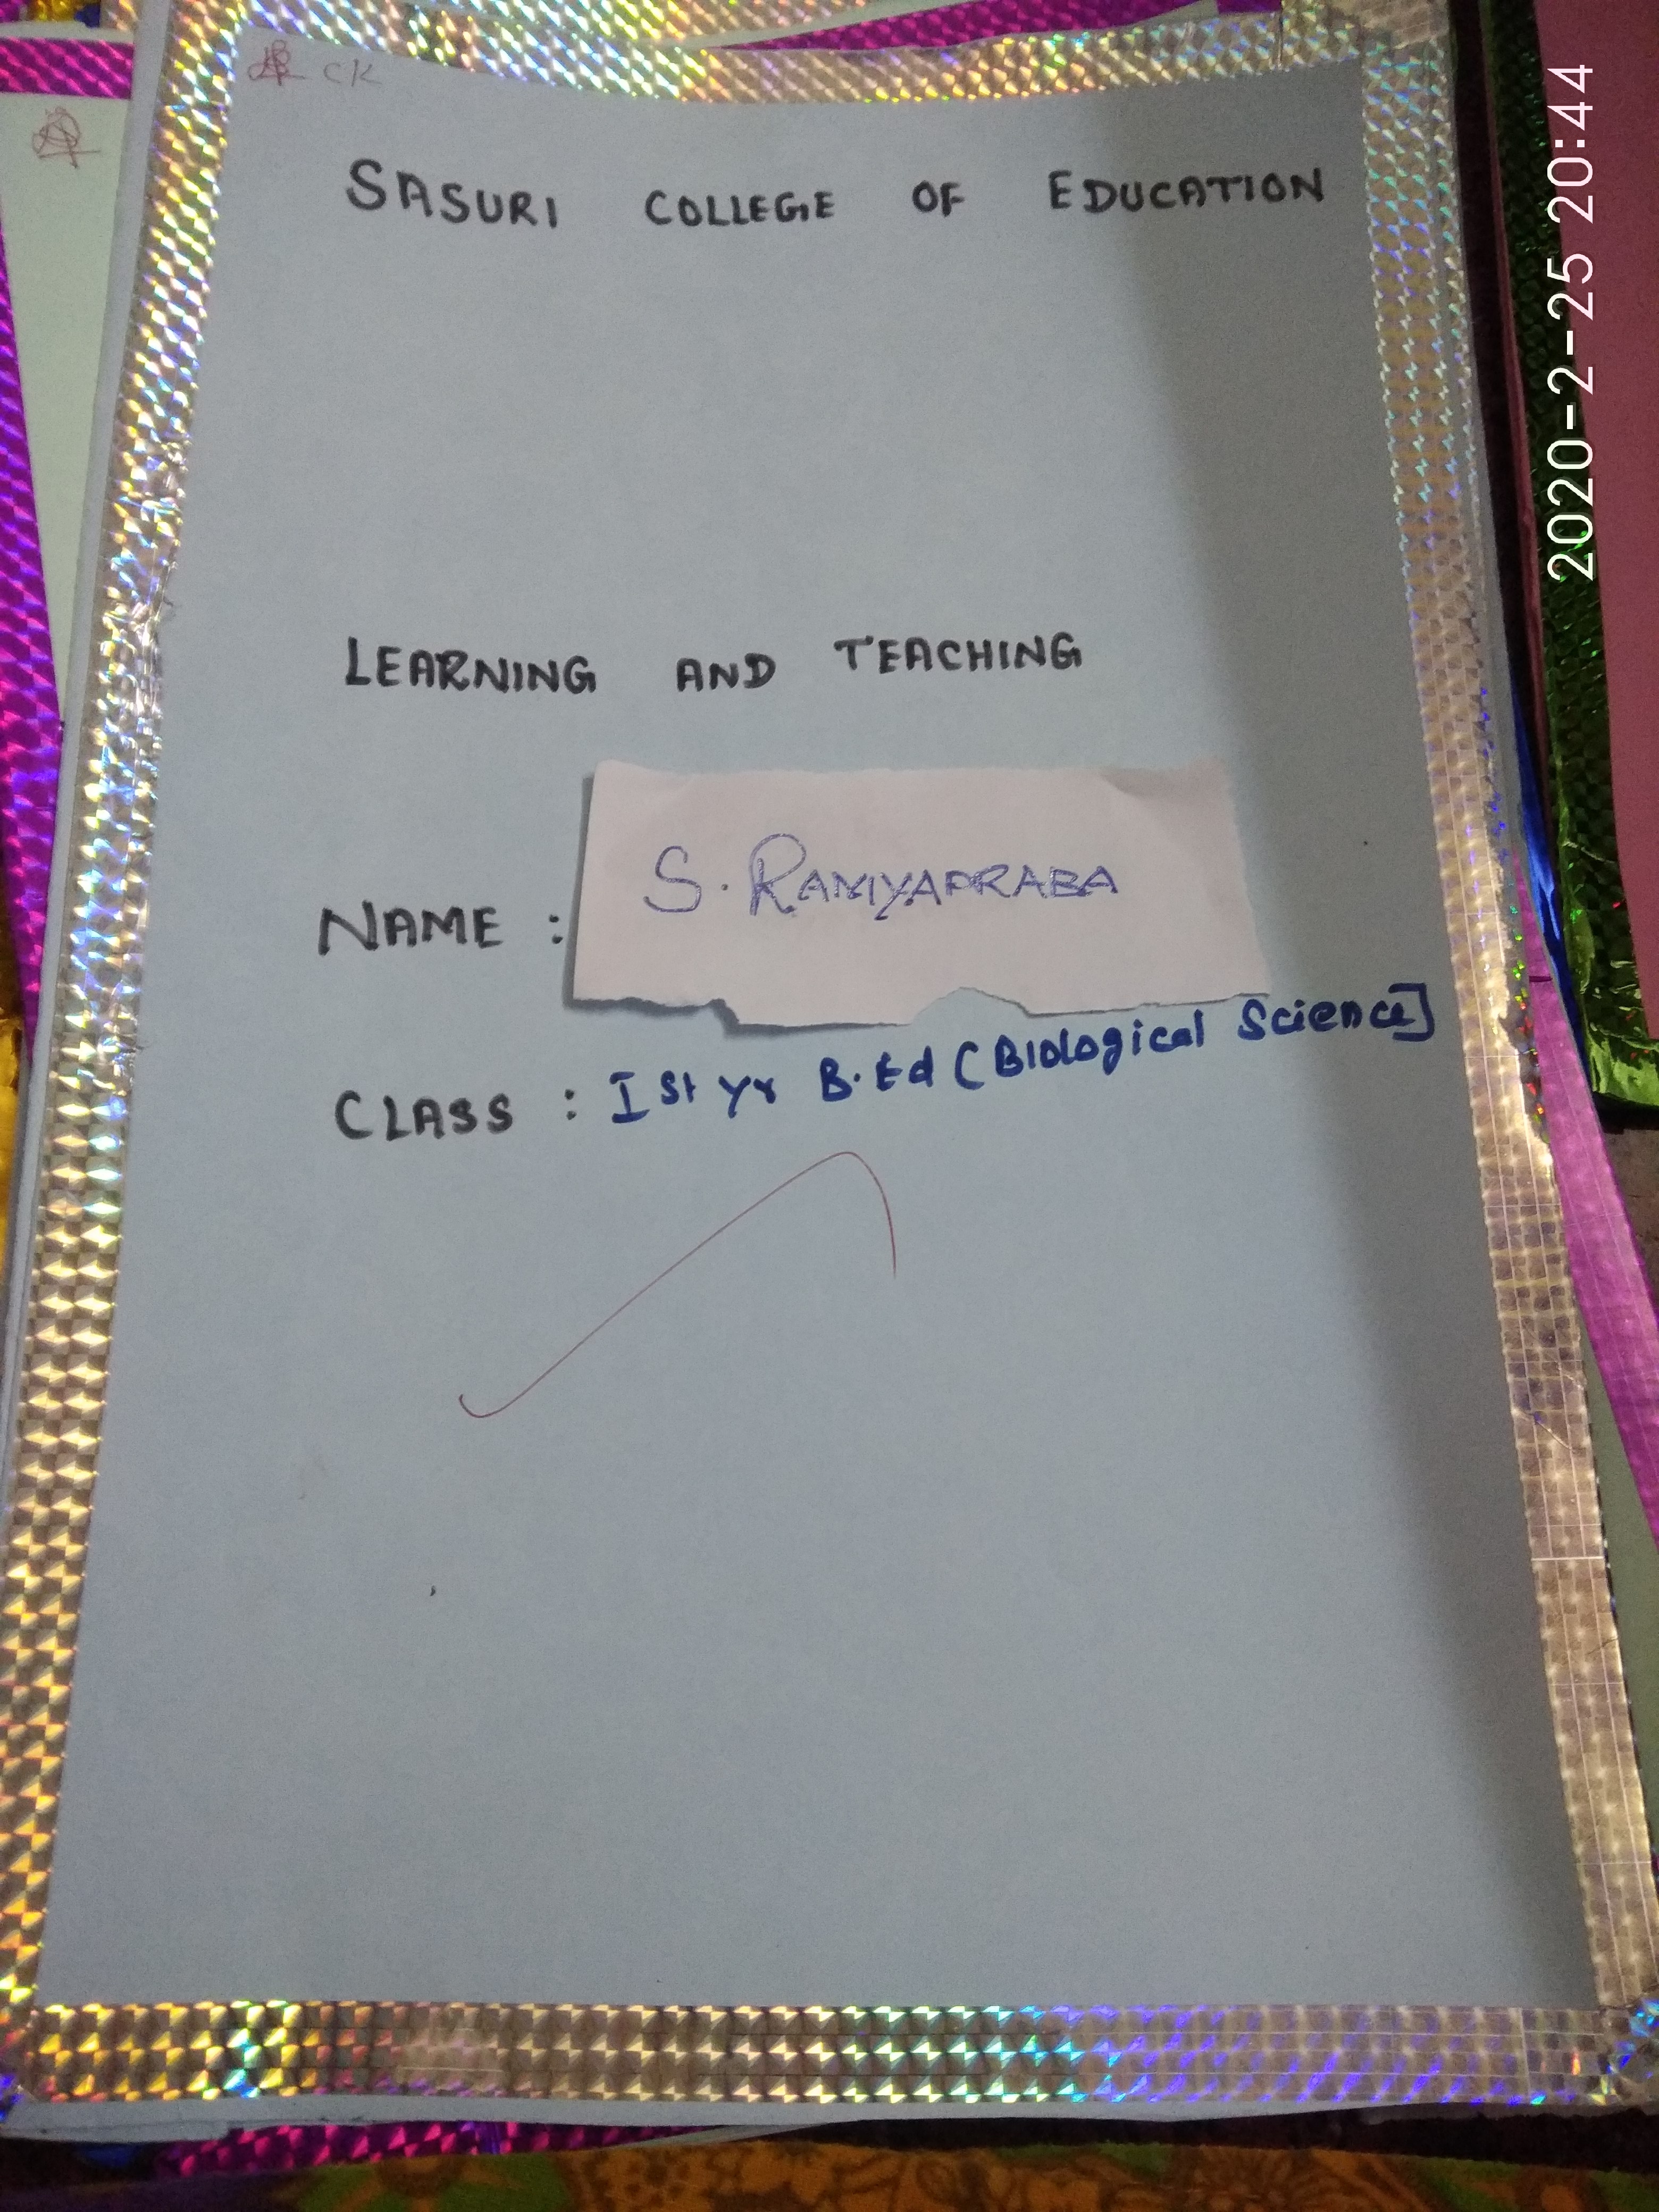 CK
SASURI COLLEGE OF EDUCATION
LEARNING AND TEACHING
NAME : S. RAMYAPRABA
CLASS : I St yr B.Ed (Biological Science]
2020-2-25 20:44